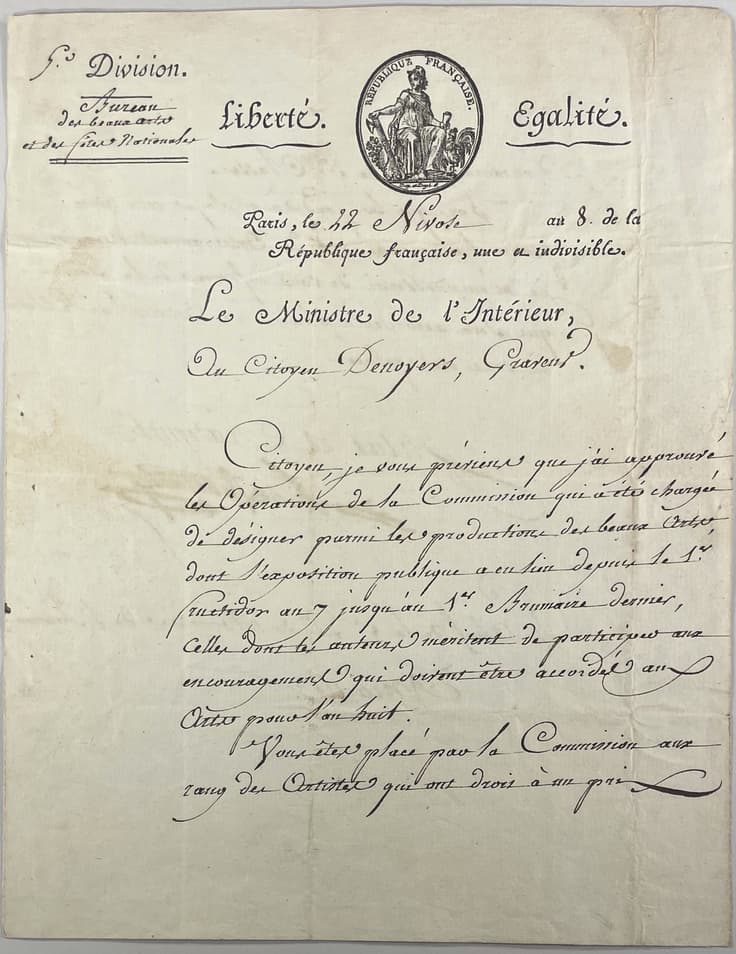 5.e Division.
Bureau
des beaux arts
et des fêtes Nationales
Liberté.
RÉPUBLIQUE FRANÇAISE.
Egalité.
Paris, le 22 Nivose an 8. de la
République française, une et indivisible.
Le Ministre de l'Intérieur,
Au Citoyen Denoyers, Graveur.
Citoyen, je vous préviens que j'ai approuvé
les Opérations de la Commission qui a été chargée
de désigner parmi les productions des beaux Arts
dont l'exposition publique a eu lieu depuis le 1.er
fructidor an 7 jusqu'au 1.er Brumaire dernier,
celles dont les auteurs méritent de participer aux
encouragemens qui doivent être accordés aux
Arts pour l'an huit.
Vous êtes placé par la Commission aux
rang des Artistes qui ont droit à un prix